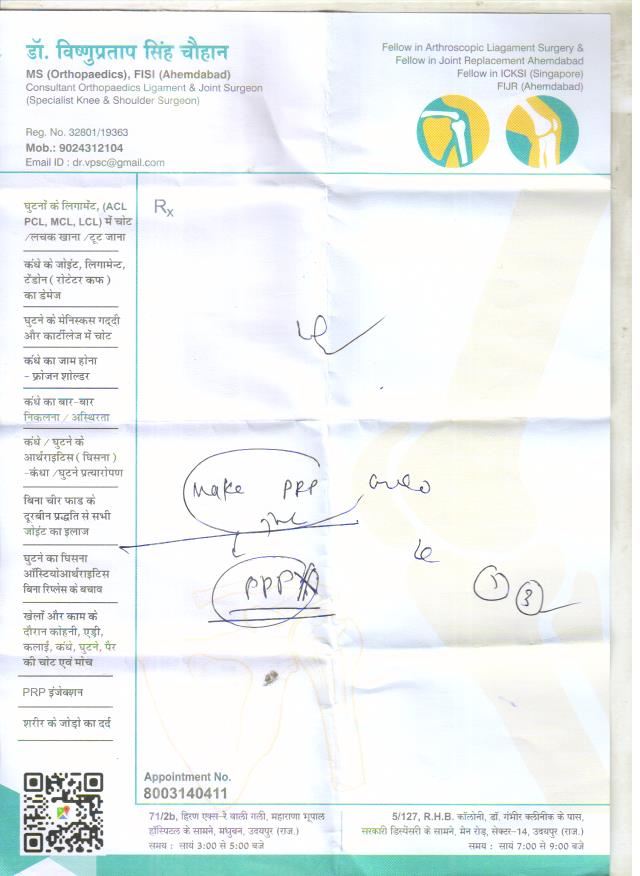 डॉ. विष्णुप्रताप सिंह चौहान
MS (Orthopaedics), FISI (Ahemdabad)
Consultant Orthopaedics Ligament & Joint Surgeon
(Specialist Knee & Shoulder Surgeon)
Reg. No. 32801/19363
Mob.: 9024312104
Email ID : dr.vpsc@gmail.com
Fellow in Arthroscopic Liagament Surgery &
Fellow in Joint Replacement Ahemdabad
Fellow in ICKSI (Singapore)
FIJR (Ahemdabad)
घुटनों के लिगामेंट, (ACL
PCL, MCL, LCL) में चोट
/लचक खाना /टूट जाना
कंधे के जोइंट, लिगामेन्ट,
टेंडोन ( रोटेटर कफ )
का डेमेज
घुटने के मेनिस्कस गद्दी
और कार्टीलेज में चोट
कंधे का जाम होना
- फ्रोजन शोल्डर
कंधे का बार-बार
निकलना / अस्थिरता
कंधे / घुटने के
आर्थराइटिस ( घिसना )
-कंधा / घुटने प्रत्यारोपण
बिना चीर फाड के
दूरबीन प्रद्धति से सभी
जोइंट का इलाज
घुटने का घिसना
ऑस्टियोआर्थराइटिस
बिना रिप्लेस के बचाव
खेलों और काम के
दौरान कोहनी, एड़ी,
कलाई, कंधे, घुटने, पैर
की चोट एवं मोच
PRP इंजेक्शन
शरीर के जोड़ो का दर्द
Rx
Make PRP
PRP
3
Appointment No.
8003140411
71/2b, हिरण एक्स-रे वाली गली, महाराणा भूपाल
हॉस्पिटल के सामने, मधुबन, उदयपुर (राज.)
समय : सायं 3:00 से 5:00 बजे
5/127, R.H.B. कॉलोनी, डॉ. गंभीर क्लीनीक के पास,
सरकारी डिस्पेंसरी के सामने, मेन रोड़, सेक्टर-14, उदयपुर (राज.)
समय : सायं 7:00 से 9:00 बजे